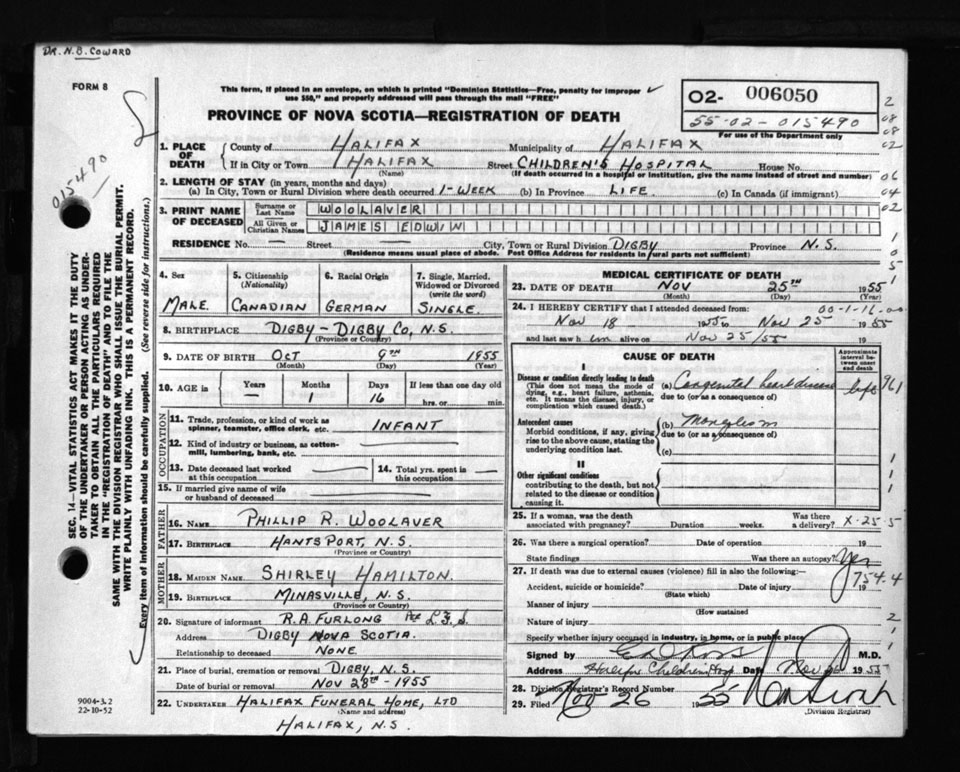 DR. N.B. COWARD
FORM 8
This form, if placed in an envelope, on which is printed "Dominion Statistics—Free, penalty for improper
use $50," and properly addressed will pass through the mail "FREE"
PROVINCE OF NOVA SCOTIA—REGISTRATION OF DEATH
02- 006050
55-02-015490
For use of the Department only
015490
2
08
08
02
06
04
02
1
0
5
1. PLACE OF DEATH
County of HALIFAX Municipality of HALIFAX
If in City or Town HALIFAX Street CHILDREN'S HOSPITAL House No.
(Name) (If death occurred in a hospital or institution, give the name instead of street and number)
2. LENGTH OF STAY (in years, months and days)
(a) In City, Town or Rural Division where death occurred 1-WEEK (b) In Province LIFE (c) In Canada (if immigrant)
3. PRINT NAME OF DECEASED
Surname or Last Name WOOLAVER
All Given or Christian Names JAMES EDWIN
RESIDENCE No. — Street — City, Town or Rural Division DIGBY Province N.S.
(Residence means usual place of abode. Post Office Address for residents in rural parts not sufficient)
SEC. 14—VITAL STATISTICS ACT MAKES IT THE DUTY
OF THE UNDERTAKER OR PERSON ACTING AS UNDER-
TAKER TO OBTAIN ALL THE PARTICULARS REQUIRED
IN THE "REGISTRATION OF DEATH" AND TO FILE THE
SAME WITH THE DIVISION REGISTRAR WHO SHALL ISSUE THE BURIAL PERMIT.
WRITE PLAINLY WITH UNFADING INK. THIS IS A PERMANENT RECORD.
Every item of information should be carefully supplied. (See reverse side for instructions.)
4. Sex MALE
5. Citizenship (Nationality) CANADIAN
6. Racial Origin GERMAN
7. Single, Married, Widowed or Divorced (write the word) SINGLE
8. BIRTHPLACE DIGBY - DIGBY CO, N.S.
(Province or Country)
9. DATE OF BIRTH OCT 9TH 1955
(Month) (Day) (Year)
10. AGE in Years — Months 1 Days 16 If less than one day old hrs. or min.
OCCUPATION
11. Trade, profession, or kind of work as spinner, teamster, office clerk, etc. INFANT
12. Kind of industry or business, as cotton-mill, lumbering, bank, etc.
13. Date deceased last worked at this occupation
14. Total yrs. spent in this occupation
15. If married give name of wife or husband of deceased
FATHER
16. NAME PHILLIP R. WOOLAVER
17. BIRTHPLACE HANTSPORT, N.S.
(Province or Country)
MOTHER
18. MAIDEN NAME SHIRLEY HAMILTON.
19. BIRTHPLACE MINASVILLE, N.S.
(Province or Country)
20. Signature of informant R.A. FURLONG
Address DIGBY NOVA SCOTIA.
Relationship to deceased NONE
21. Place of burial, cremation or removal DIGBY, N.S.
Date of burial or removal NOV 28TH - 1955
22. UNDERTAKER HALIFAX FUNERAL HOME, LTD
(Name and address)
HALIFAX, N.S.
9004-3.2
22-10-52
MEDICAL CERTIFICATE OF DEATH
23. DATE OF DEATH NOV 25TH 1955
(Month) (Day) (Year)
24. I HEREBY CERTIFY that I attended deceased from: 00-1-16-00
Nov 18 1955 to Nov 25 1955
and last saw him alive on Nov 25/55 19
CAUSE OF DEATH
Approximate interval between onset and death
I
Disease or condition directly leading to death (This does not mean the mode of dying, e.g., heart failure, asthenia, etc. It means the disease, injury, or complication which caused death.)
(a) Congenital heart disease life 961
due to (or as a consequence of)
Antecedent causes
Morbid conditions, if any, giving rise to the above cause, stating the underlying condition last.
(b) Mongolism
due to (or as a consequence of)
(c)
II
Other significant conditions
contributing to the death, but not related to the disease or condition causing it.
1
1
1
25. If a woman, was the death associated with pregnancy? Duration weeks. Was there a delivery? X-25-5
26. Was there a surgical operation? Date of operation 19
State findings Was there an autopsy? Yes
27. If death was due to external causes (violence) fill in also the following:— 754.4
Accident, suicide or homicide? Date of injury 19
(State which)
Manner of injury
(How sustained
Nature of injury
Specify whether injury occurred in industry, in home, or in public place
2
1
1
Signed by M.D.
Address Halifax Children Hosp Date Nov 26 1955
28. Division Registrar's Record Number
29. Filed Nov 26 1955
(Division Registrar)